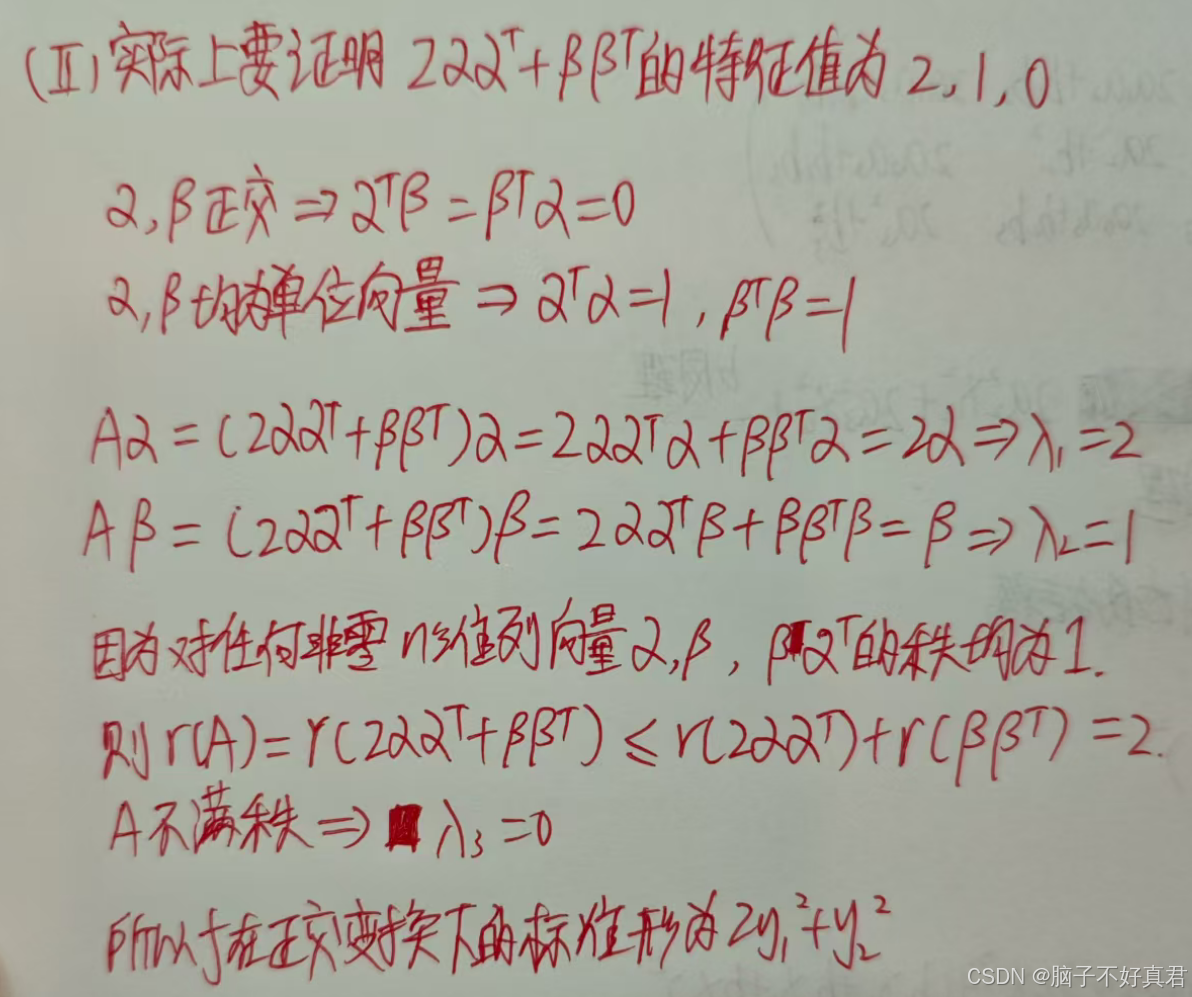 (Ⅱ)实际上要证明 2αα^T+ββ^T的特征值为2,1,0
α,β正交⇒α^Tβ=β^Tα=0
α,β均为单位向量⇒α^Tα=1,β^Tβ=1
Aα=(2αα^T+ββ^T)α=2αα^Tα+ββ^Tα=2α⇒λ₁=2
Aβ=(2αα^T+ββ^T)β=2αα^Tβ+ββ^Tβ=β⇒λ₂=1
因为对任何非零n维列向量α,β,βα^T的秩均为1.
则r(A)=r(2αα^T+ββ^T)≤r(2αα^T)+r(ββ^T)=2.
A不满秩⇒λ₃=0
所以f在正交变换下的标准形为2y₁²+y₂²
CSDN @脑子不好真君